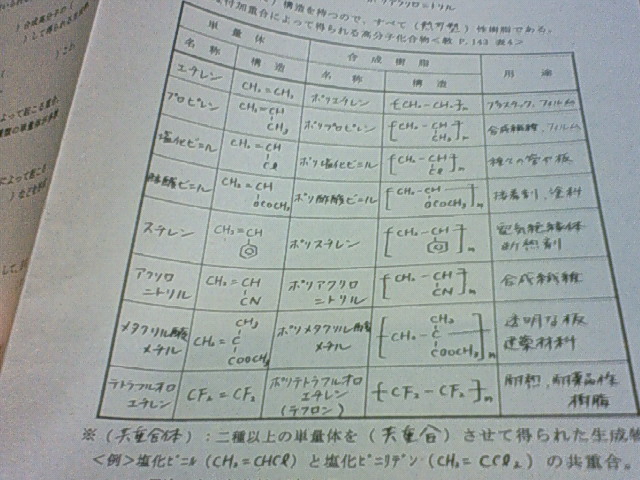 構造を持つので、すべて（熱可塑）性樹脂である。
付加重合によって得られる高分子化合物＜教 P.143 表4＞
単量体 合成樹脂 用途
名称 構造 名称 構造
エチレン CH₂=CH₂ ポリエチレン [CH₂-CH₂]n プラスチック、フィルム
プロピレン CH₂=CH CH₃ ポリプロピレン [CH₂-CH CH₃]n 合成繊維、フィルム
塩化ビニル CH₂=CH Cl ポリ塩化ビニル [CH₂-CH Cl]n 種々の管や板
酢酸ビニル CH₂=CH OCOCH₃ ポリ酢酸ビニル [CH₂-CH OCOCH₃]n 接着剤、塗料
スチレン CH₂=CH ポリスチレン [CH₂-CH]n 空気絶縁体
断熱剤
アクリロ
ニトリル CH₂=CH CN ポリアクリロ
ニトリル [CH₂-CH CN]n 合成繊維
メタクリル酸
メチル CH₂=C CH₃ COOCH₃ ポリメタクリル酸
メチル [CH₂-C CH₃ COOCH₃]n 透明な板
建築材料
テトラフルオロ
エチレン CF₂=CF₂ ポリテトラフルオロ
エチレン
(テフロン) [CF₂-CF₂]n 耐熱、耐薬品性
樹脂
※（共重合体）：二種以上の単量体を（共重合）させて得られた生成物
＜例＞塩化ビニル（CH₂=CHCl）と塩化ビニリデン（CH₂=CCl₂）の共重合。